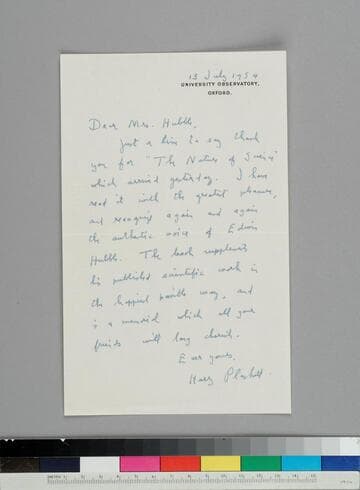 13 July 1954
UNIVERSITY OBSERVATORY,
OXFORD.
Dear Mrs. Hubble,
Just a line to say thank
you for "The Nature of Science"
which arrived yesterday. I have
read it with the greatest pleasure,
and recognize again and again
the authentic voice of Edwin
Hubble. The book supplements
his published scientific work in
the happiest possible way, and
is a memorial which all your
friends will long cherish.
Ever yours,
Harry Plaskett.